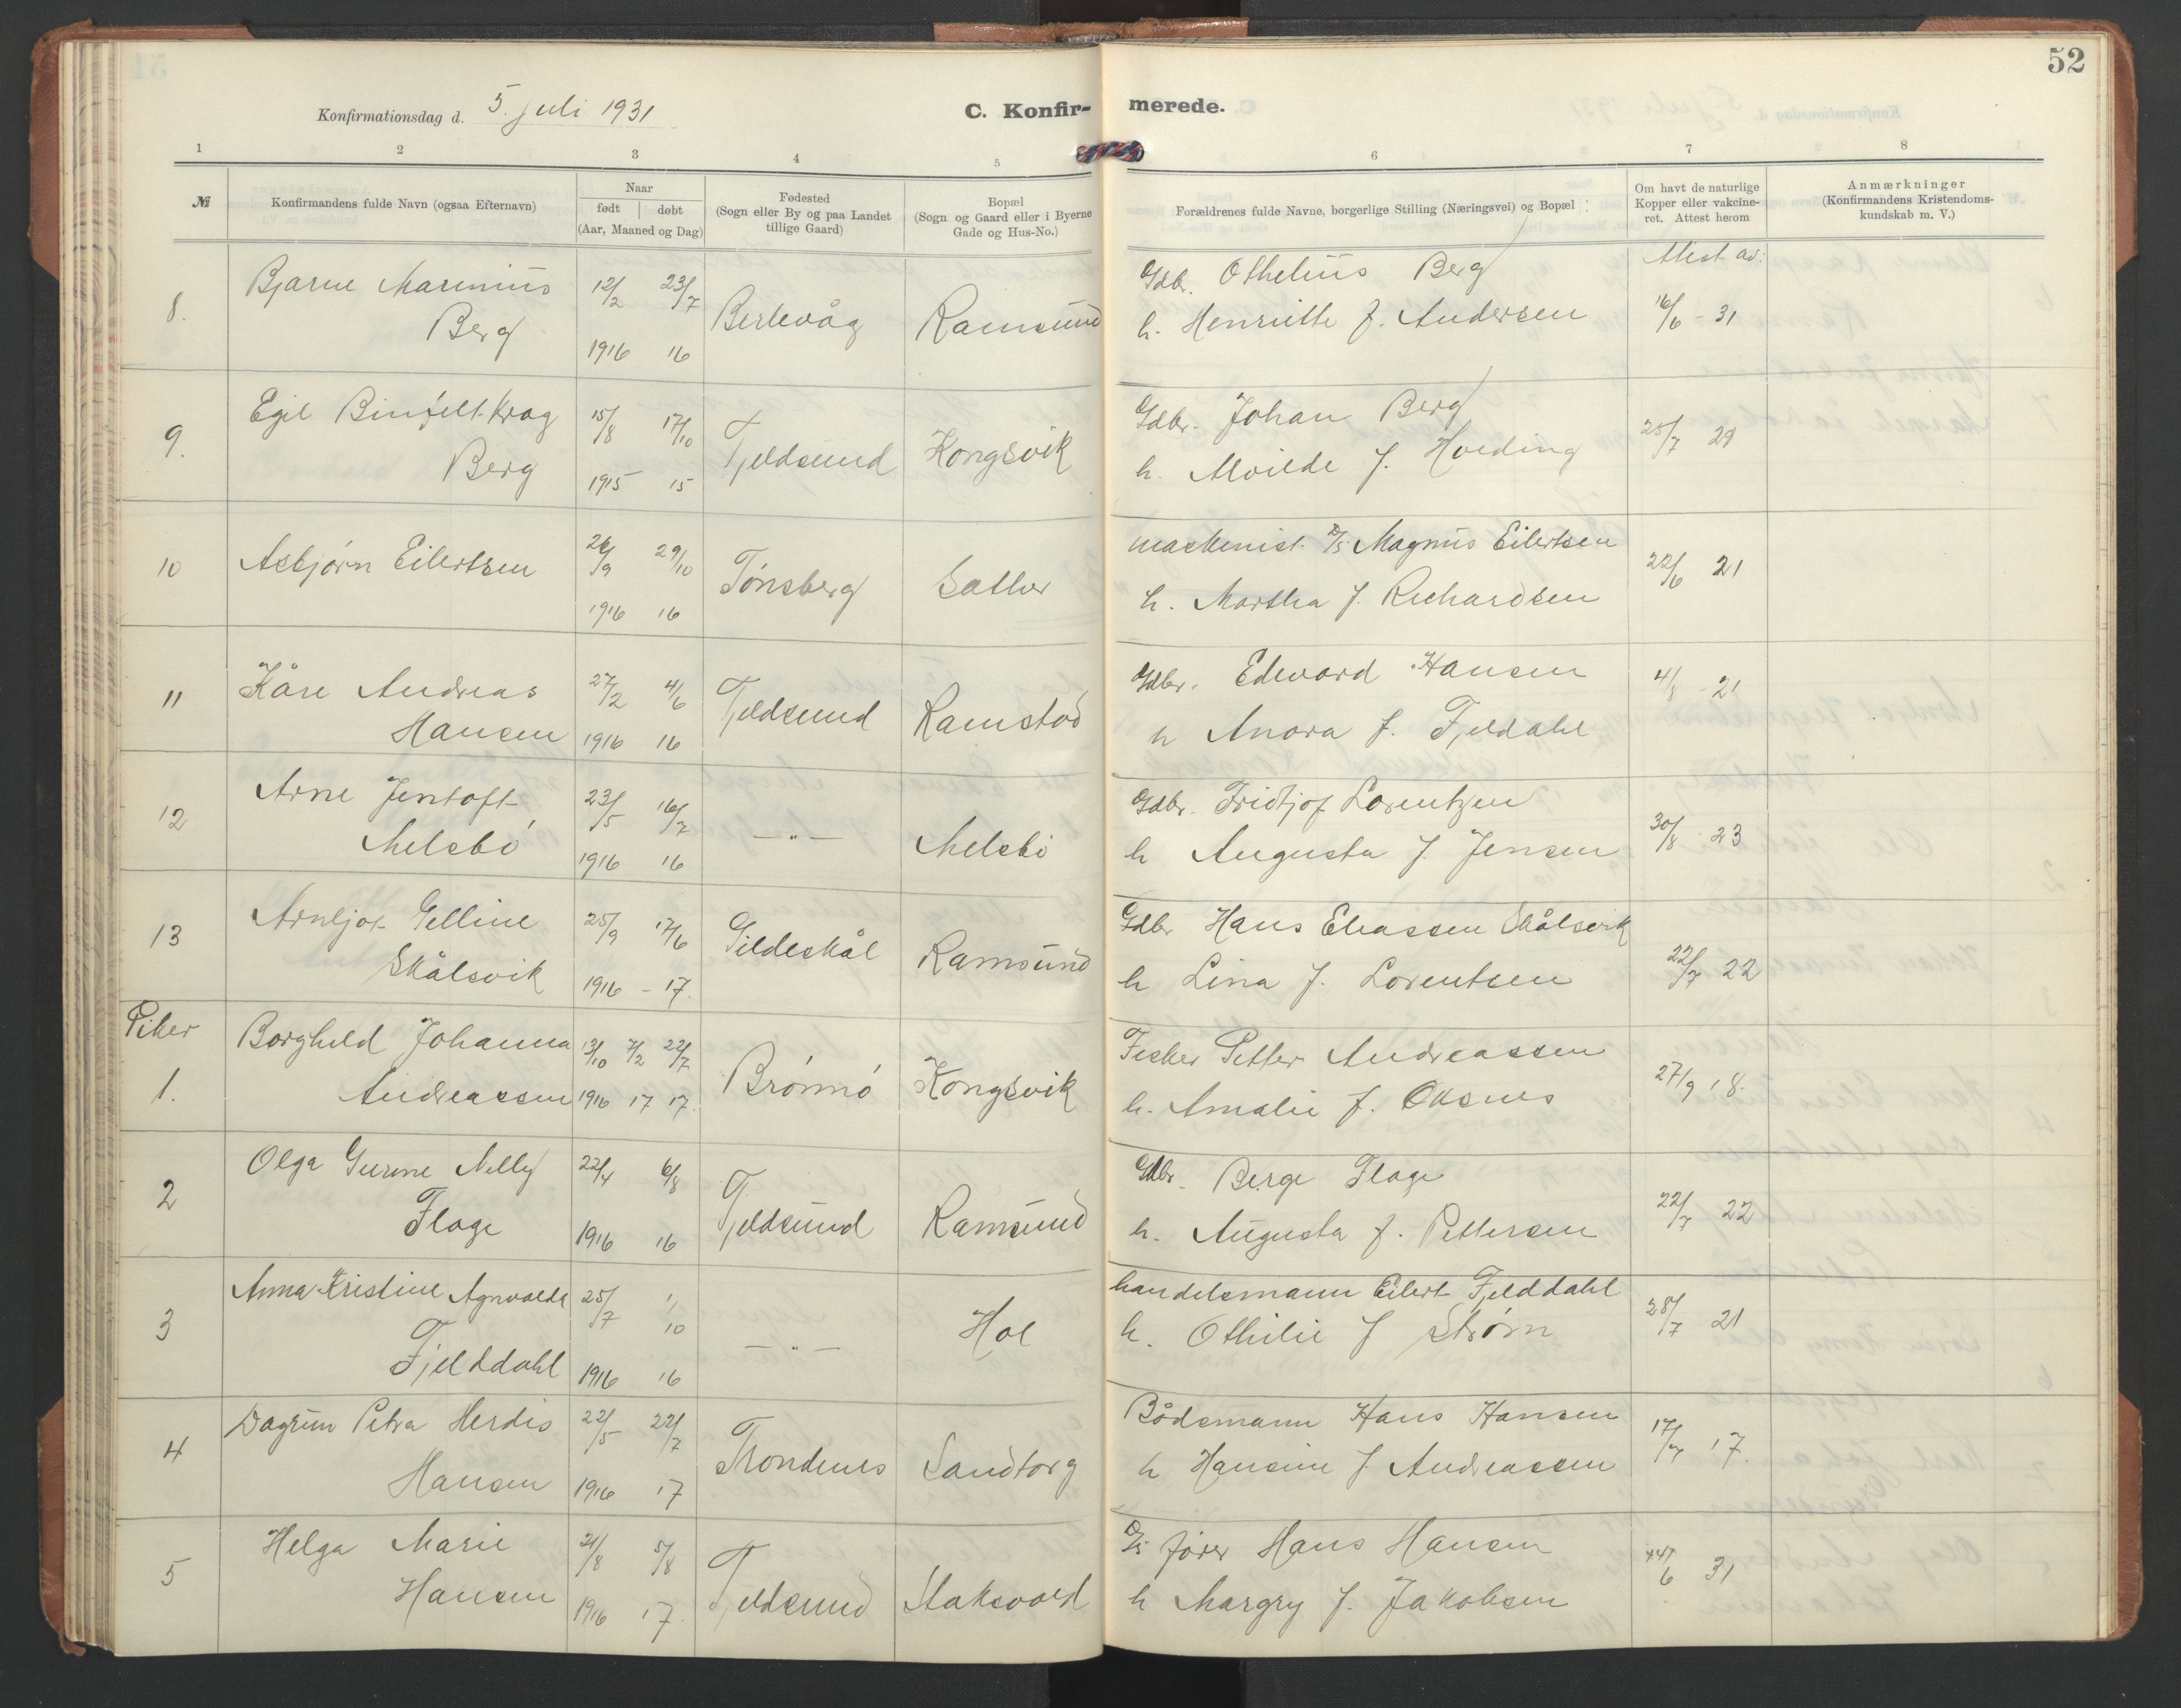 52
Konfirmationsdag d. 5. juli 1931
C. Konfir- merede.
1 2 3 4 5 6 7 8
№
Konfirmandens fulde Navn (ogsaa Efternavn)
Naar
født døbt
(Aar, Maaned og Dag)
Fødested
(Sogn eller By og paa Landet
tillige Gaard)
Bopæl
(Sogn og Gaard eller i Byerne
Gade og Hus-No.)
Forældrenes fulde Navne, borgerlige Stilling (Næringsvei) og Bopæl
Om havt de naturlige
Kopper eller vakcine-
ret. Attest herom
Anmærkninger
(Konfirmandens Kristendoms-
kundskab m. V.)
Attest av:
8. Bjarne Marinius 12/2 23/7 Berlevåg Ramsund Gdbr. Othelius Berg 16/6 - 31
Berg 1916 16 h. Henriette f. Andersen
9. Egil Binfelt Krag 15/8 17/10 Tjeldsund Kongsvik Gdbr. Johan Berg 25/7 29
Berg 1915 15 h. Alvilde f. Hveding
10 Asbjørn Eilertsen 26/9 29/10 Tønsberg Sætter maskinist D/S Magnus Eilertsen 22/6 21
1916 16 h. Martha f. Richardsen
11 Kåre Andreas 27/2 4/6 Tjeldsund Ramstad Gdbr. Edward Hansen 4/8 - 21
Hansen 1916 16 h Anora f. Fjeldahl
12 Arne Jentoft 23/5 16/7 — " — Melsbø Gdbr. Fridtjof Lorentzen 30/8 23
Melsbø 1916 16 h Augusta f. Jensen
13 Arnljot Gelline 25/9 17/6 Gildeskål Ramsund Gdbr Hans Eliassen Skålsvik 22/7 22
Skålsvik 1916 - 17. h Lina f. Lorentsen
Piker
1. Borghild Johanna 13/10 7/2 22/7 Brønnø Kongsvik Fisker Petter Andreassen 27/9 18.
Andreassen 1916 17 17. h. Amalie f. Oksnes
2 Olga Gurine Nelly 22/4 6/8 Tjeldsund Ramsund Gdbr. Berge Flage 22/7 22
Flage 1916 16 h. Augusta f. Pettersen
3 Anna Kristine Agnvalda 25/7 1/10 — " — Hol handelsmann Eilert Fjelddahl 28/7 21
Fjelddahl 1916 16 h. Othilie f Strøm
4 Dagrun Petra Herdis 22/5 22/7 Trondenes Sandtorg Bådsmann Hans Hansen 17/7 17.
Hansen 1916 17 h Hansine f Andreassen
5 Helga Marie 21/8 5/8 Tjeldsund Staksvold D/S fører Hans Hansen 6 31
Hansen 1916 17. h Margry f. Jakobsen